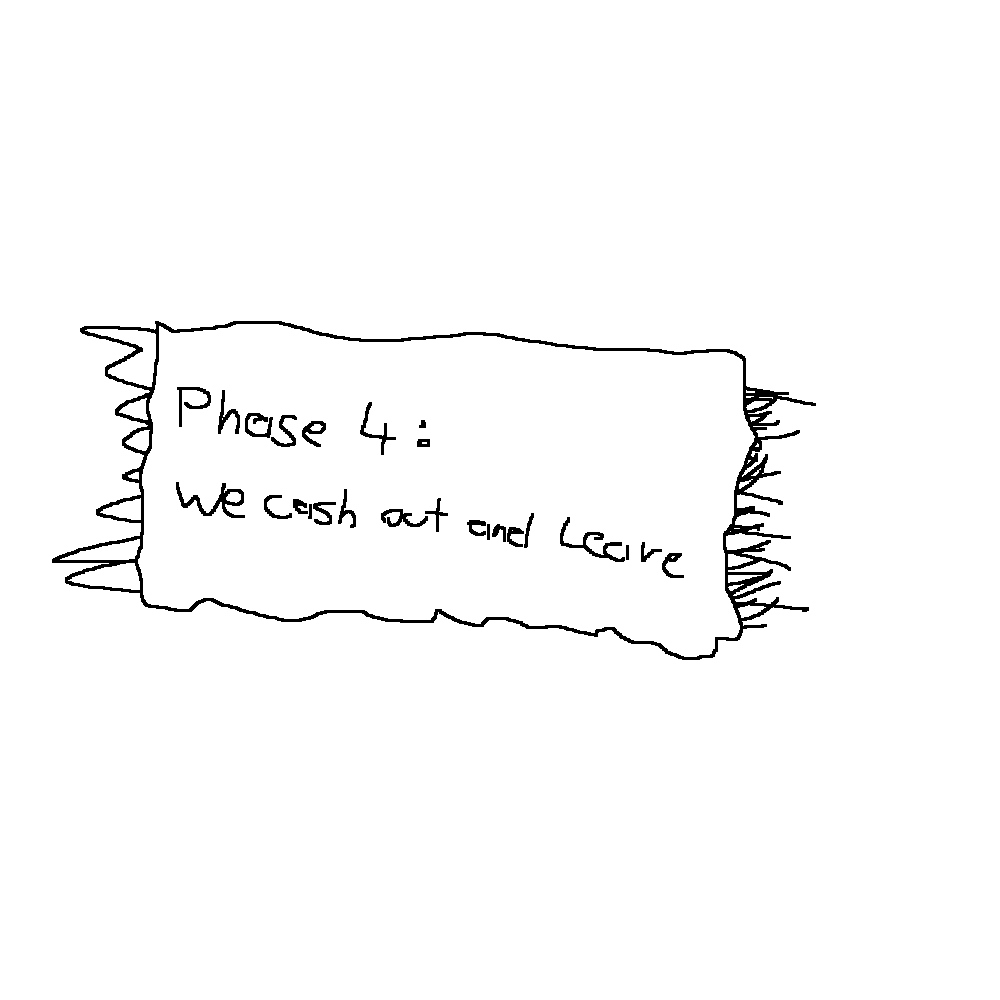 Phase 4:
We cash out and Leave